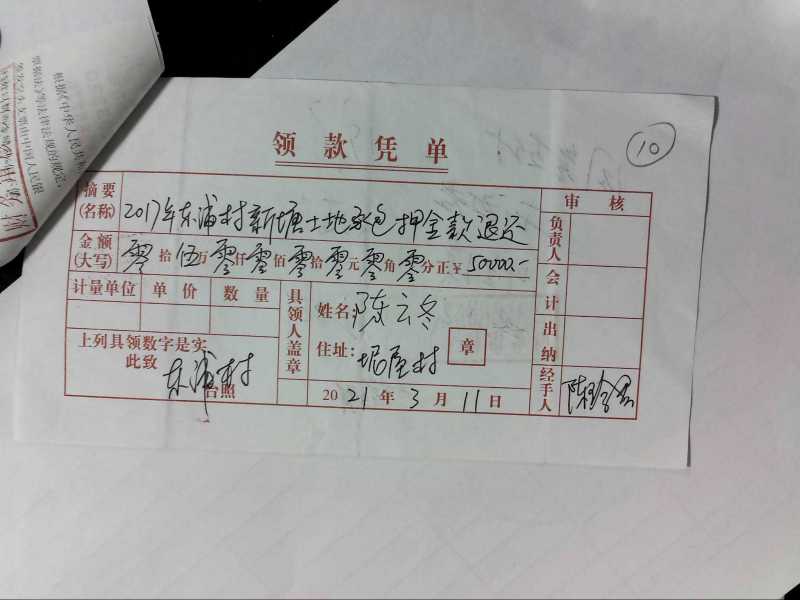 根据《中华人民共和
票据法》等法律法规的规定,
签发空头支票由中国人民银
领款凭单
10
摘要(名称) 2017年东浦村新塘土地承包押金款退还
审核
金额(大写) 零拾伍万零仟零佰零拾零元零角零分正¥50000.-
负责人
计量单位 单价 数量
具领人盖章
姓名: 陈云冬
会计
上列具领数字是实
住址: 坭屋村
章
出纳
此致
东浦村
台照
2021年3月11日
经手人